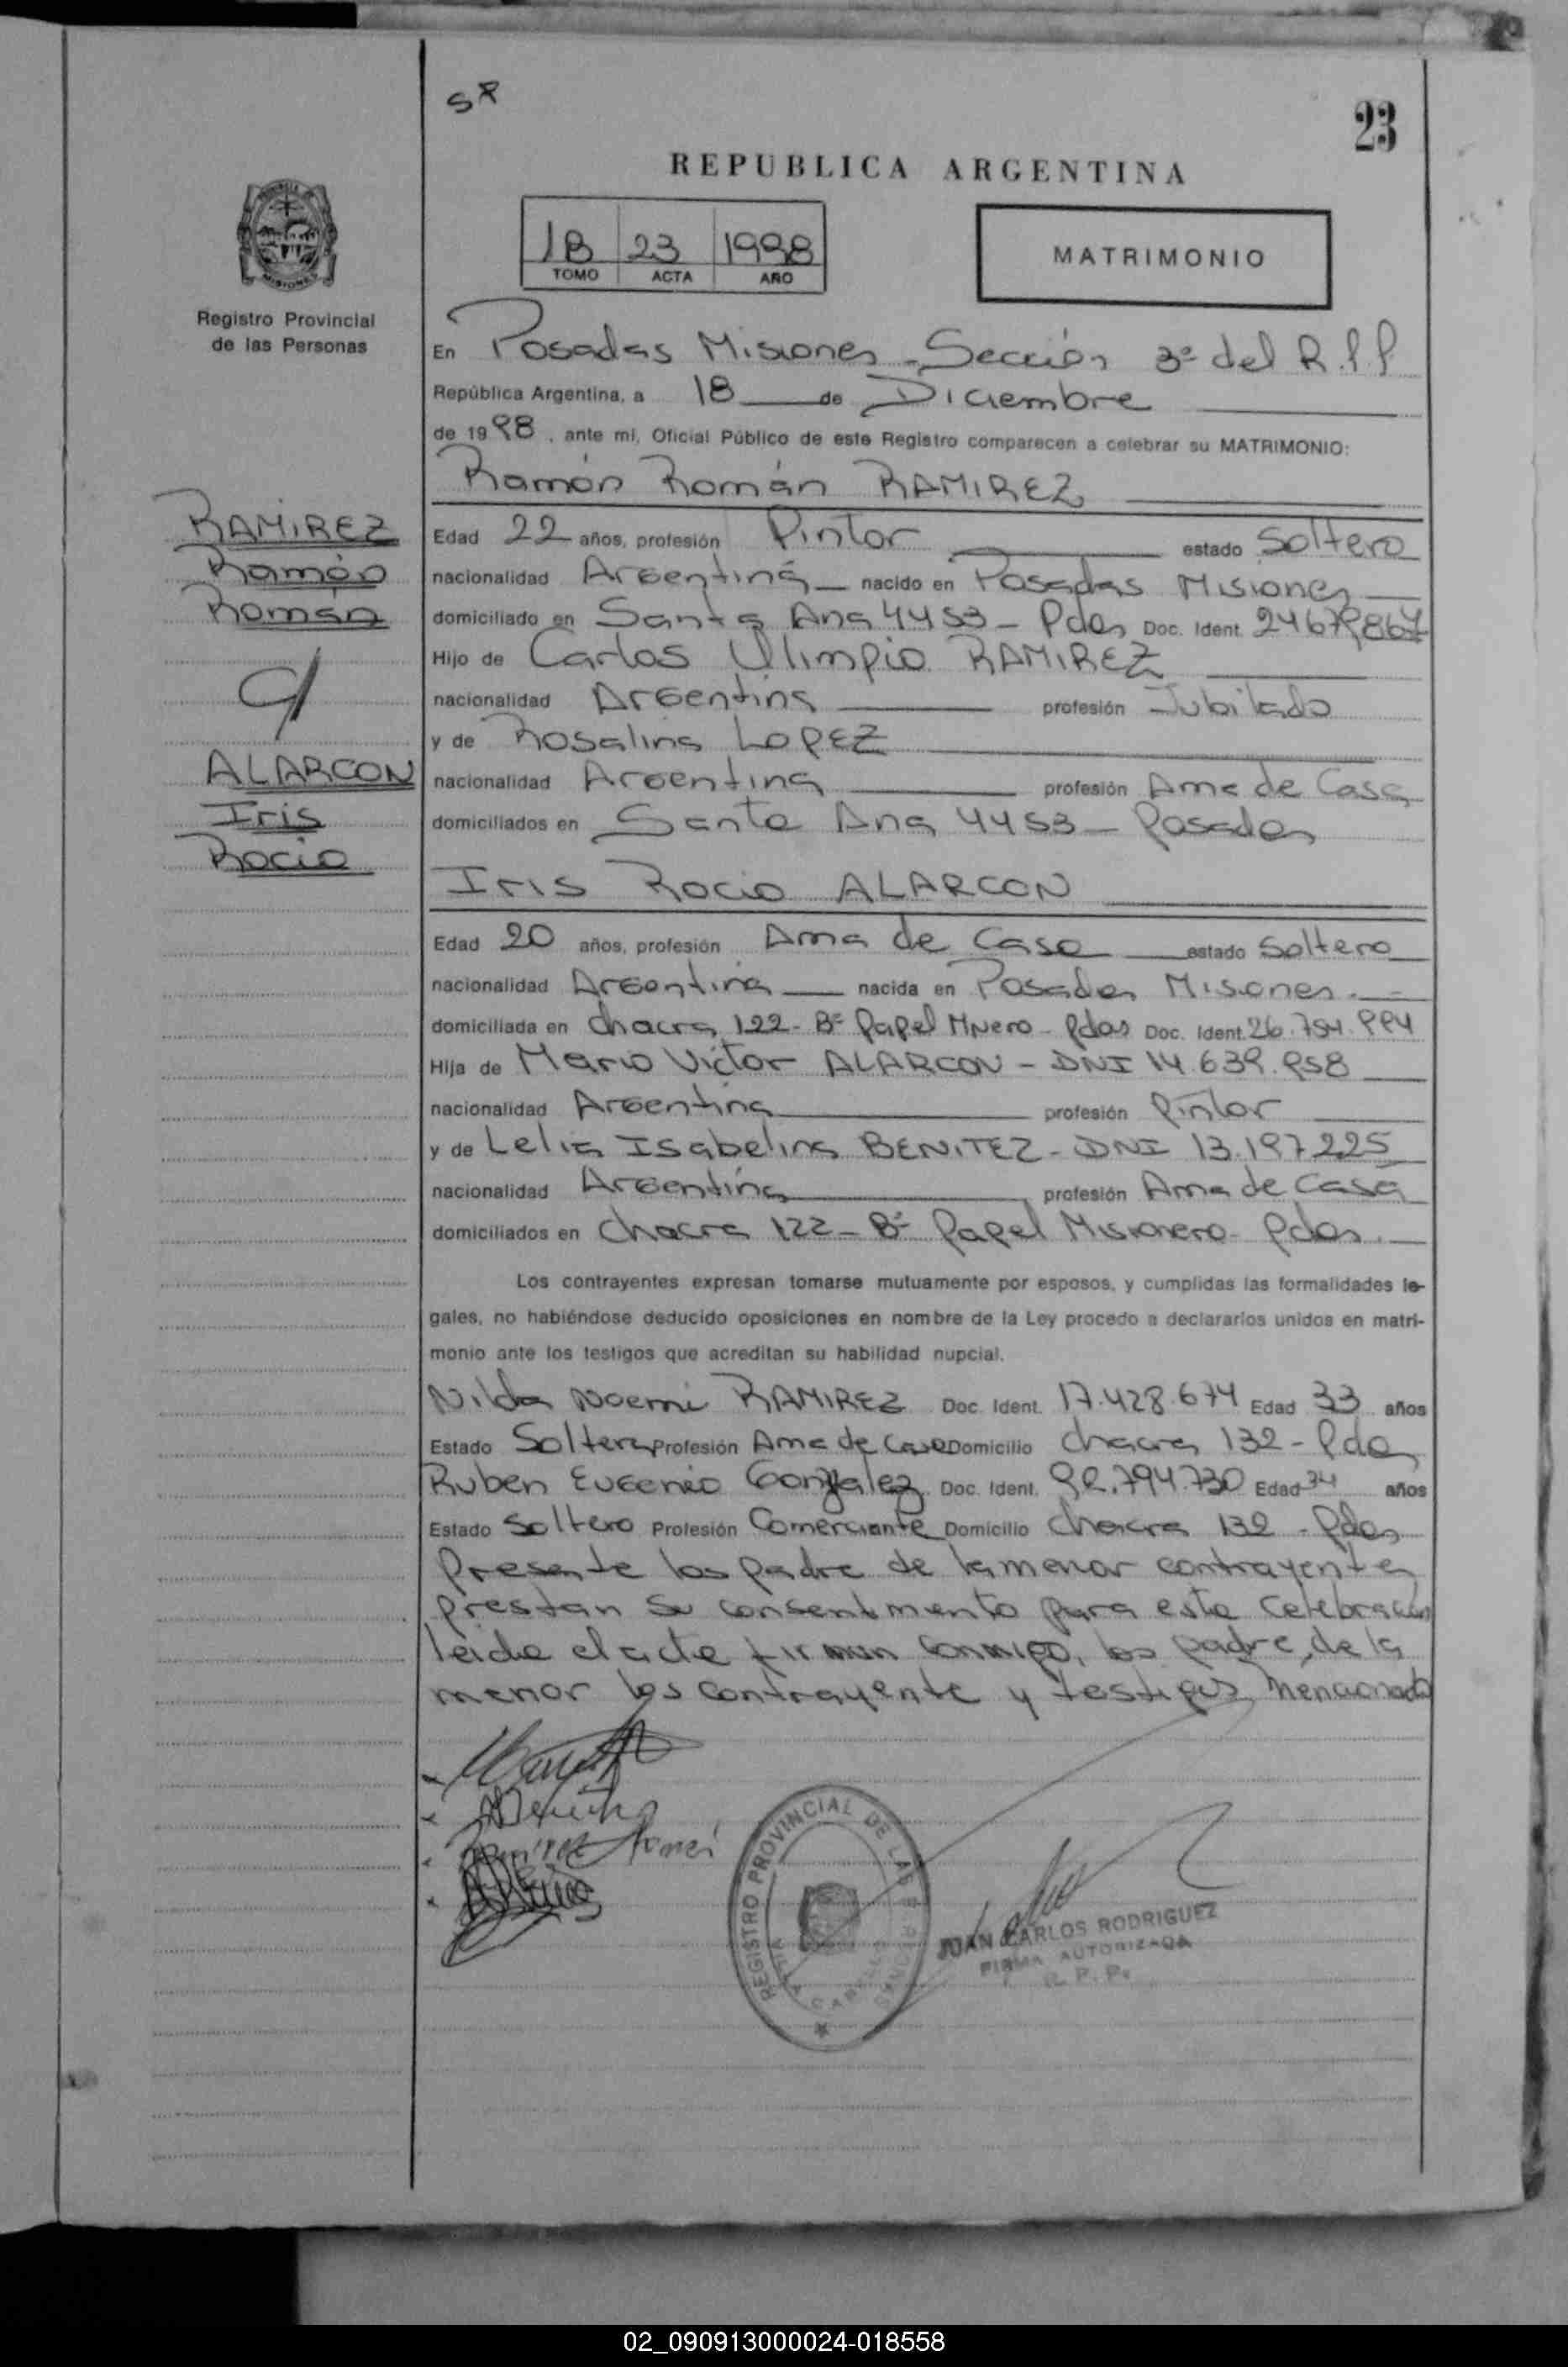 S R
23
REPUBLICA ARGENTINA
1B 23 1998
TOMO ACTA AÑO
MATRIMONIO
Registro Provincial
de las Personas
En Posadas Misiones - Sección 3ª del R.P.P
República Argentina, a 18 de Diciembre
de 1998, ante mi, Oficial Público de este Registro comparecen a celebrar su MATRIMONIO:
Ramón Román RAMIREZ
RAMIREZ
Ramón
Román
c/
ALARCON
Iris
Rocio
Edad 22 años, profesión Pintor estado Soltero
nacionalidad Argentina nacido en Posadas Misiones
domiciliado en Santa Ana 4453 - Pdas Doc. Ident. 24679867
Hijo de Carlos Olimpio RAMIREZ
nacionalidad Argentina profesión Jubilado
y de Rosalina LOPEZ
nacionalidad Argentina profesión Ama de Casa
domiciliados en Santa Ana 4453 - Posadas
Iris Rocio ALARCON
Edad 20 años, profesión Ama de Casa estado Soltera
nacionalidad Argentina nacida en Posadas Misiones.
domiciliada en Chacra 122 - Bº Papel Mnero - Pdas Doc. Ident. 26.754.994
Hija de Mario Victor ALARCON - DNI 14.639.958
nacionalidad Argentina profesión Pintor
y de Lelia Isabelina BENITEZ - DNI 13.197.225
nacionalidad Argentina profesión Ama de Casa
domiciliados en Chacra 122 - Bº Papel Misionero - Pdas.
Los contrayentes expresan tomarse mutuamente por esposos, y cumplidas las formalidades le-
gales, no habiéndose deducido oposiciones en nombre de la Ley procedo a declararlos unidos en matri-
monio ante los testigos que acreditan su habilidad nupcial.
Nilda Noemi RAMIREZ Doc. Ident. 17.428.674 Edad 33 años
Estado Soltera Profesión Ama de Casa Domicilio Chacra 132 - Pdas
Ruben Eugenio Gonzalez Doc. Ident. 92.794.730 Edad 34 años
Estado Soltero Profesión Comerciante Domicilio Chacra 132 - Pdas
Presente los padre de la menor contrayente,
prestan su consentimento para esta Celebración
leida el acta firman conmigo, los padre de la
menor los contrayente y testigos mencionado
Ramirez Noemi
REGISTRO PROVINCIAL DE LAS PERSONAS
JUAN CARLOS RODRIGUEZ
FIRMA AUTORIZADA
R. P. P.
02_090913000024-018558